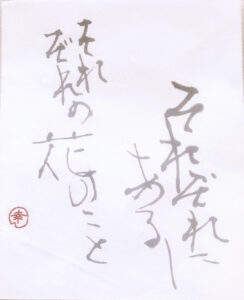 それぞれに
あるし
それ
ぞれの花
のこと
幸